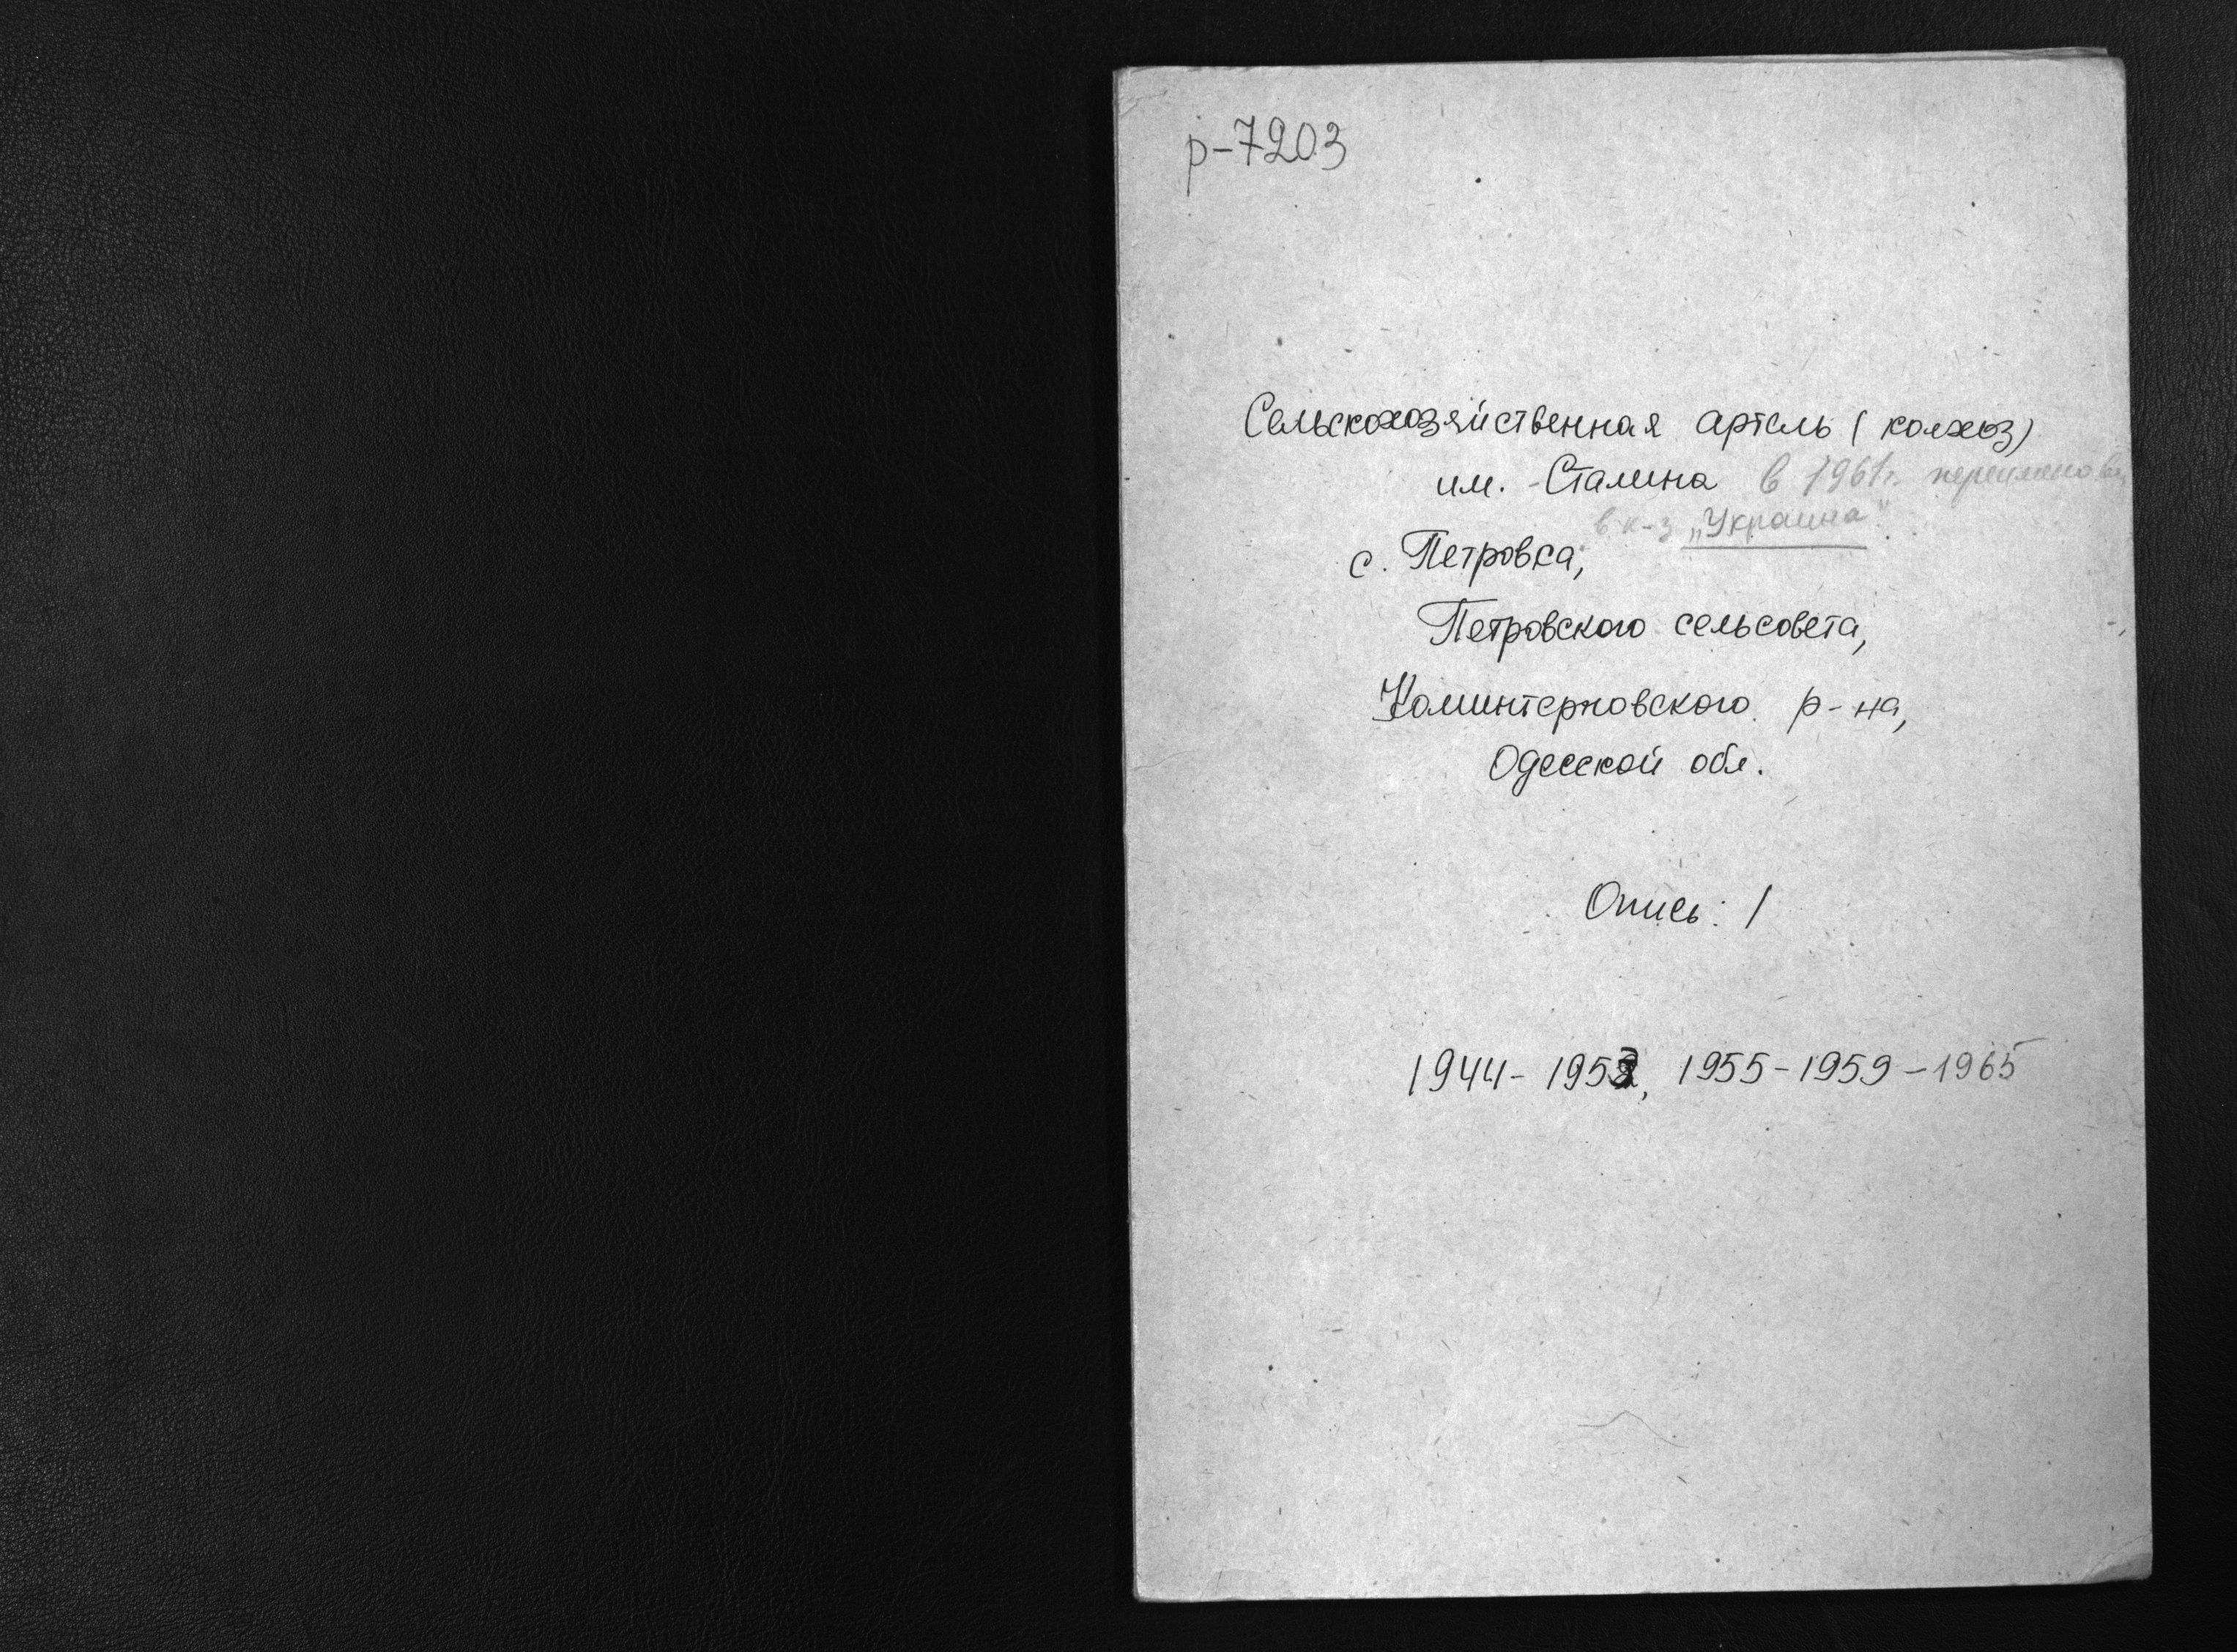 р-7203
Сельскохозяйственная артель (колхоз)
им. Сталина в 1961г. переименован
в к-з „Украина"
с. Петровка,
Петровского сельсовета,
Коминтерновского р-на,
Одесской обл.
Опись: 1
1944- 1953, 1955-1959-1965